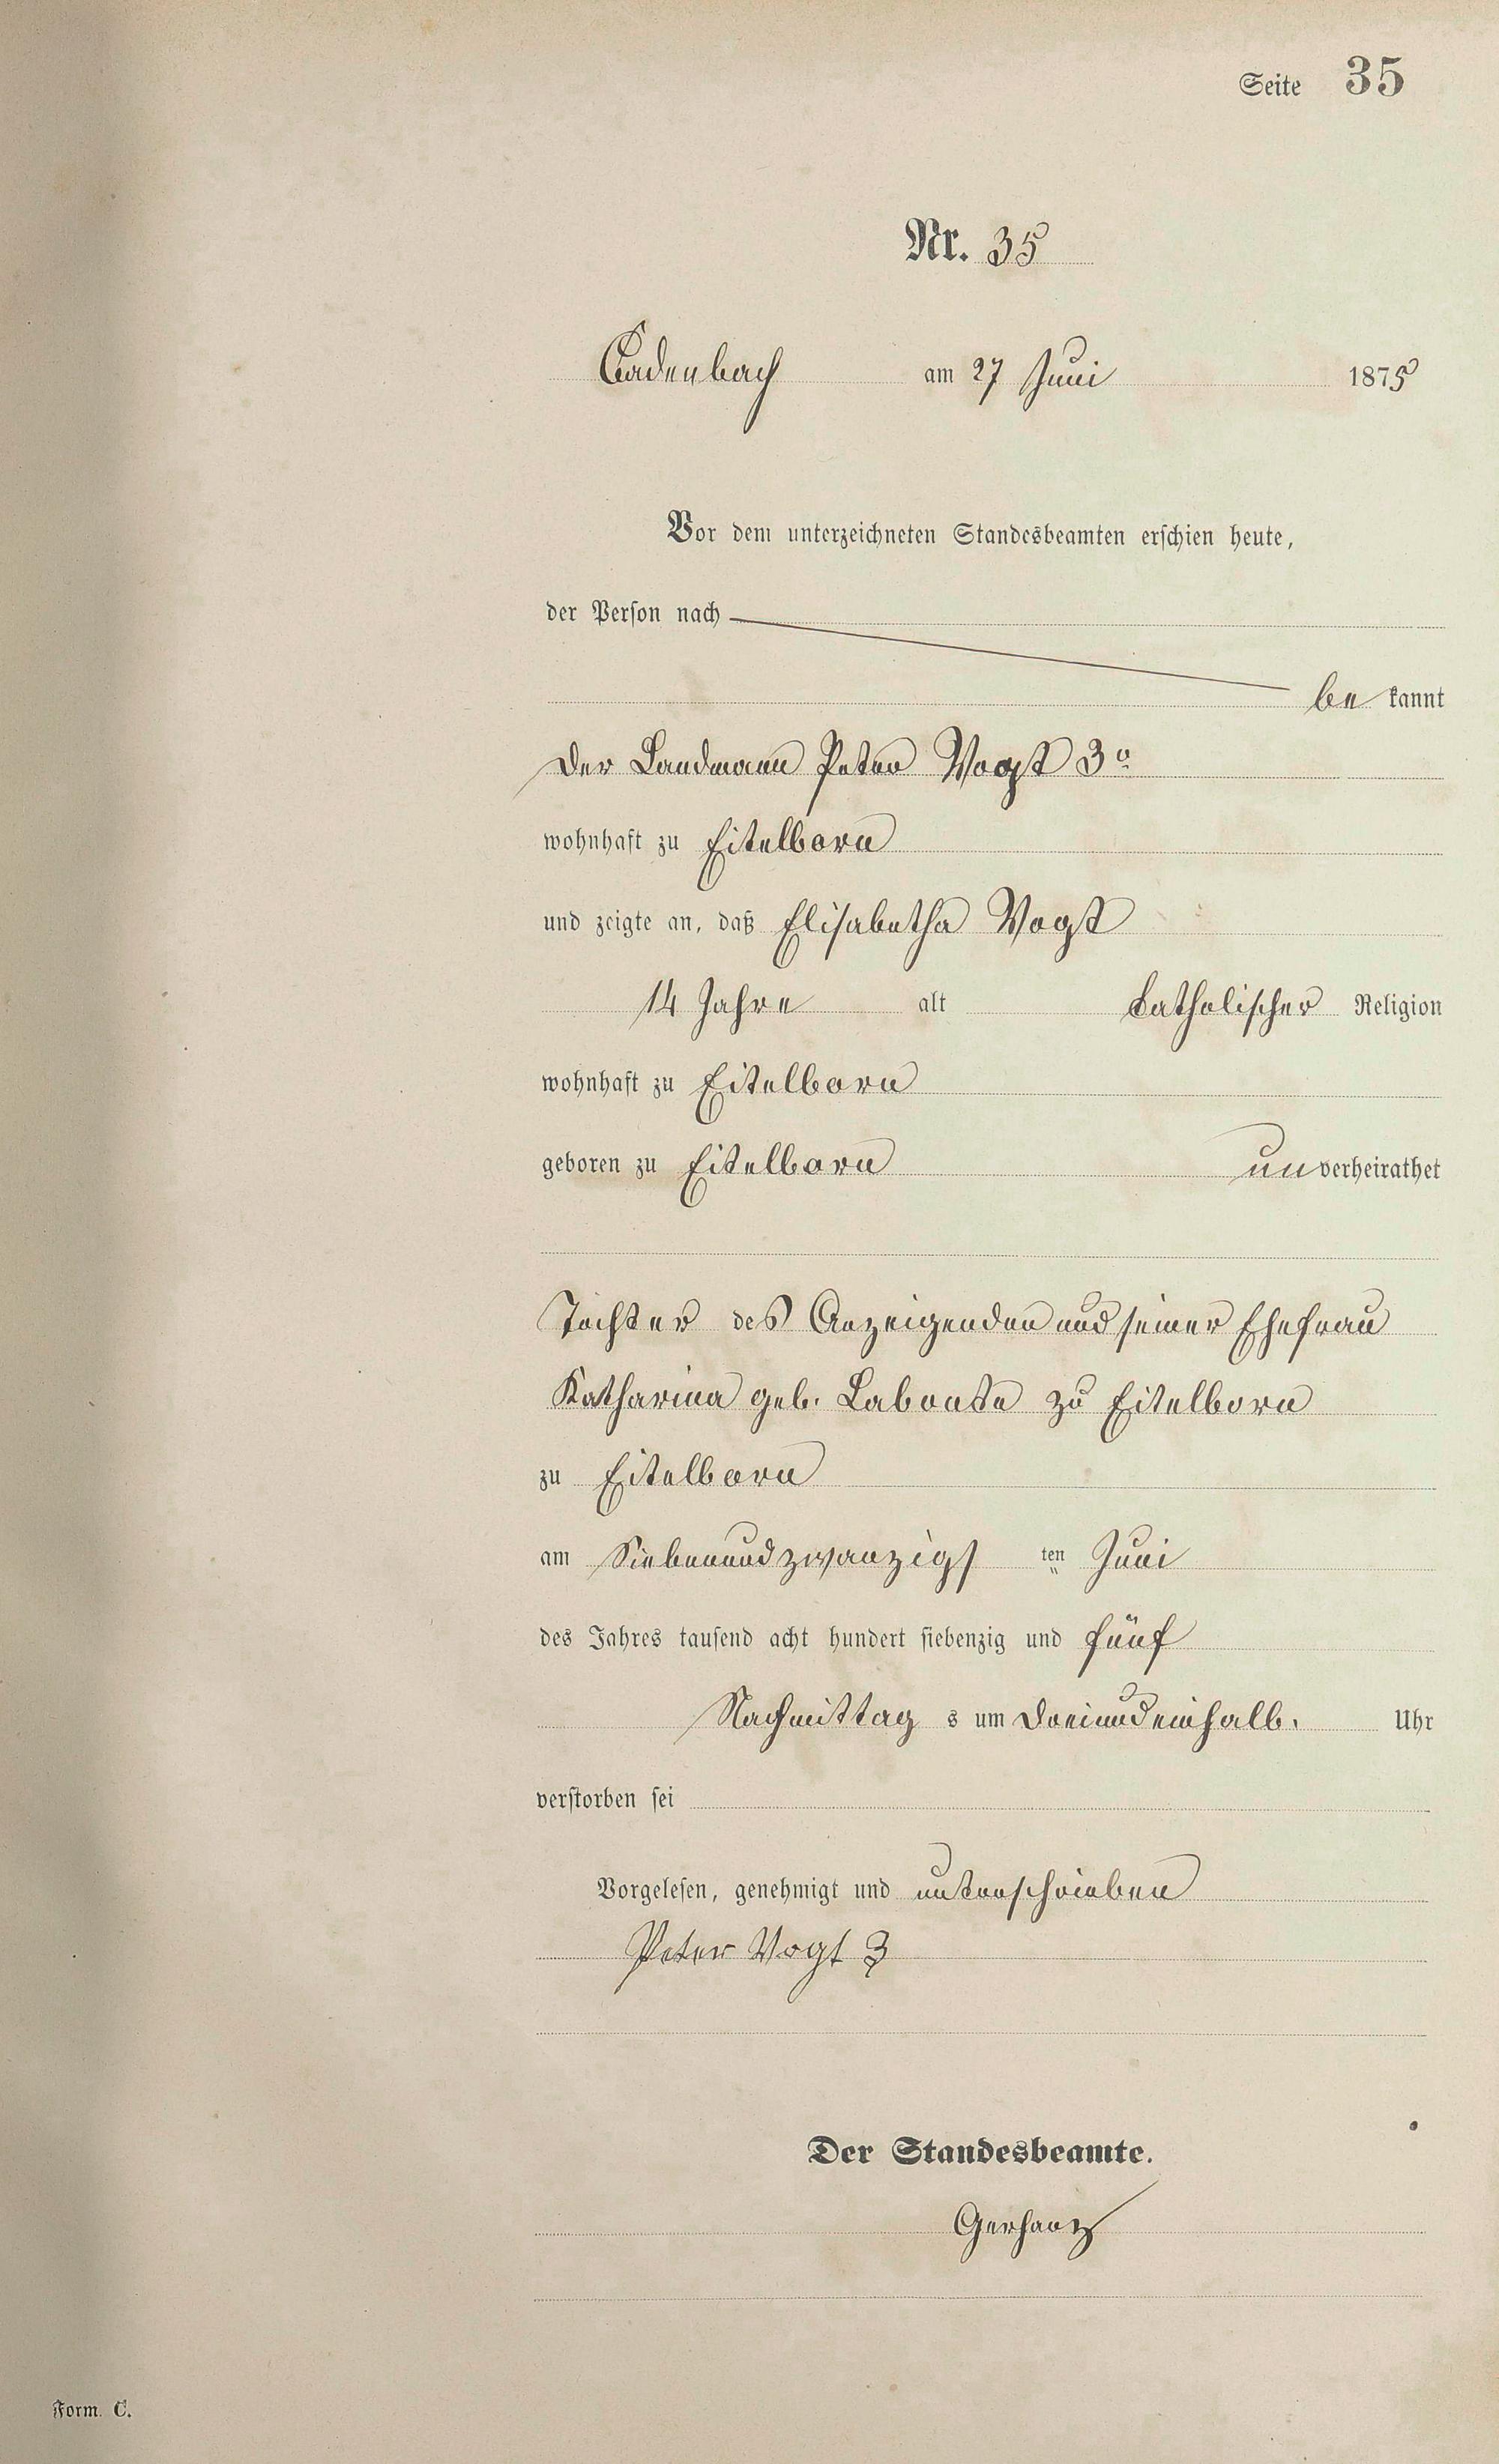 Seite 35
Nr. 35
Cadenbach am 27 Juni 1875
Vor dem unterzeichneten Standesbeamten erschien heute,
der Person nach
be kannt
der Landmann Peter Vogt 3r
wohnhaft zu Eitelborn
und zeigte an, daß Elisabetha Vogt
14 Jahre alt katholischer Religion
wohnhaft zu Eitelborn
geboren zu Eitelborn unverheirathet
Tochter des Anzeigenden und seiner Ehefrau
Katharina geb. Labonte zu Eitelborn
zu Eitelborn
am Siebenundzwanzigs ten Juni
des Jahres tausend acht hundert siebenzig und fünf
Nachmittag s um dreiundeinhalb. Uhr
verstorben sei
Vorgelesen, genehmigt und unterschrieben
Peter Vogt 3
Der Standesbeamte.
Gerhartz
Form. C.